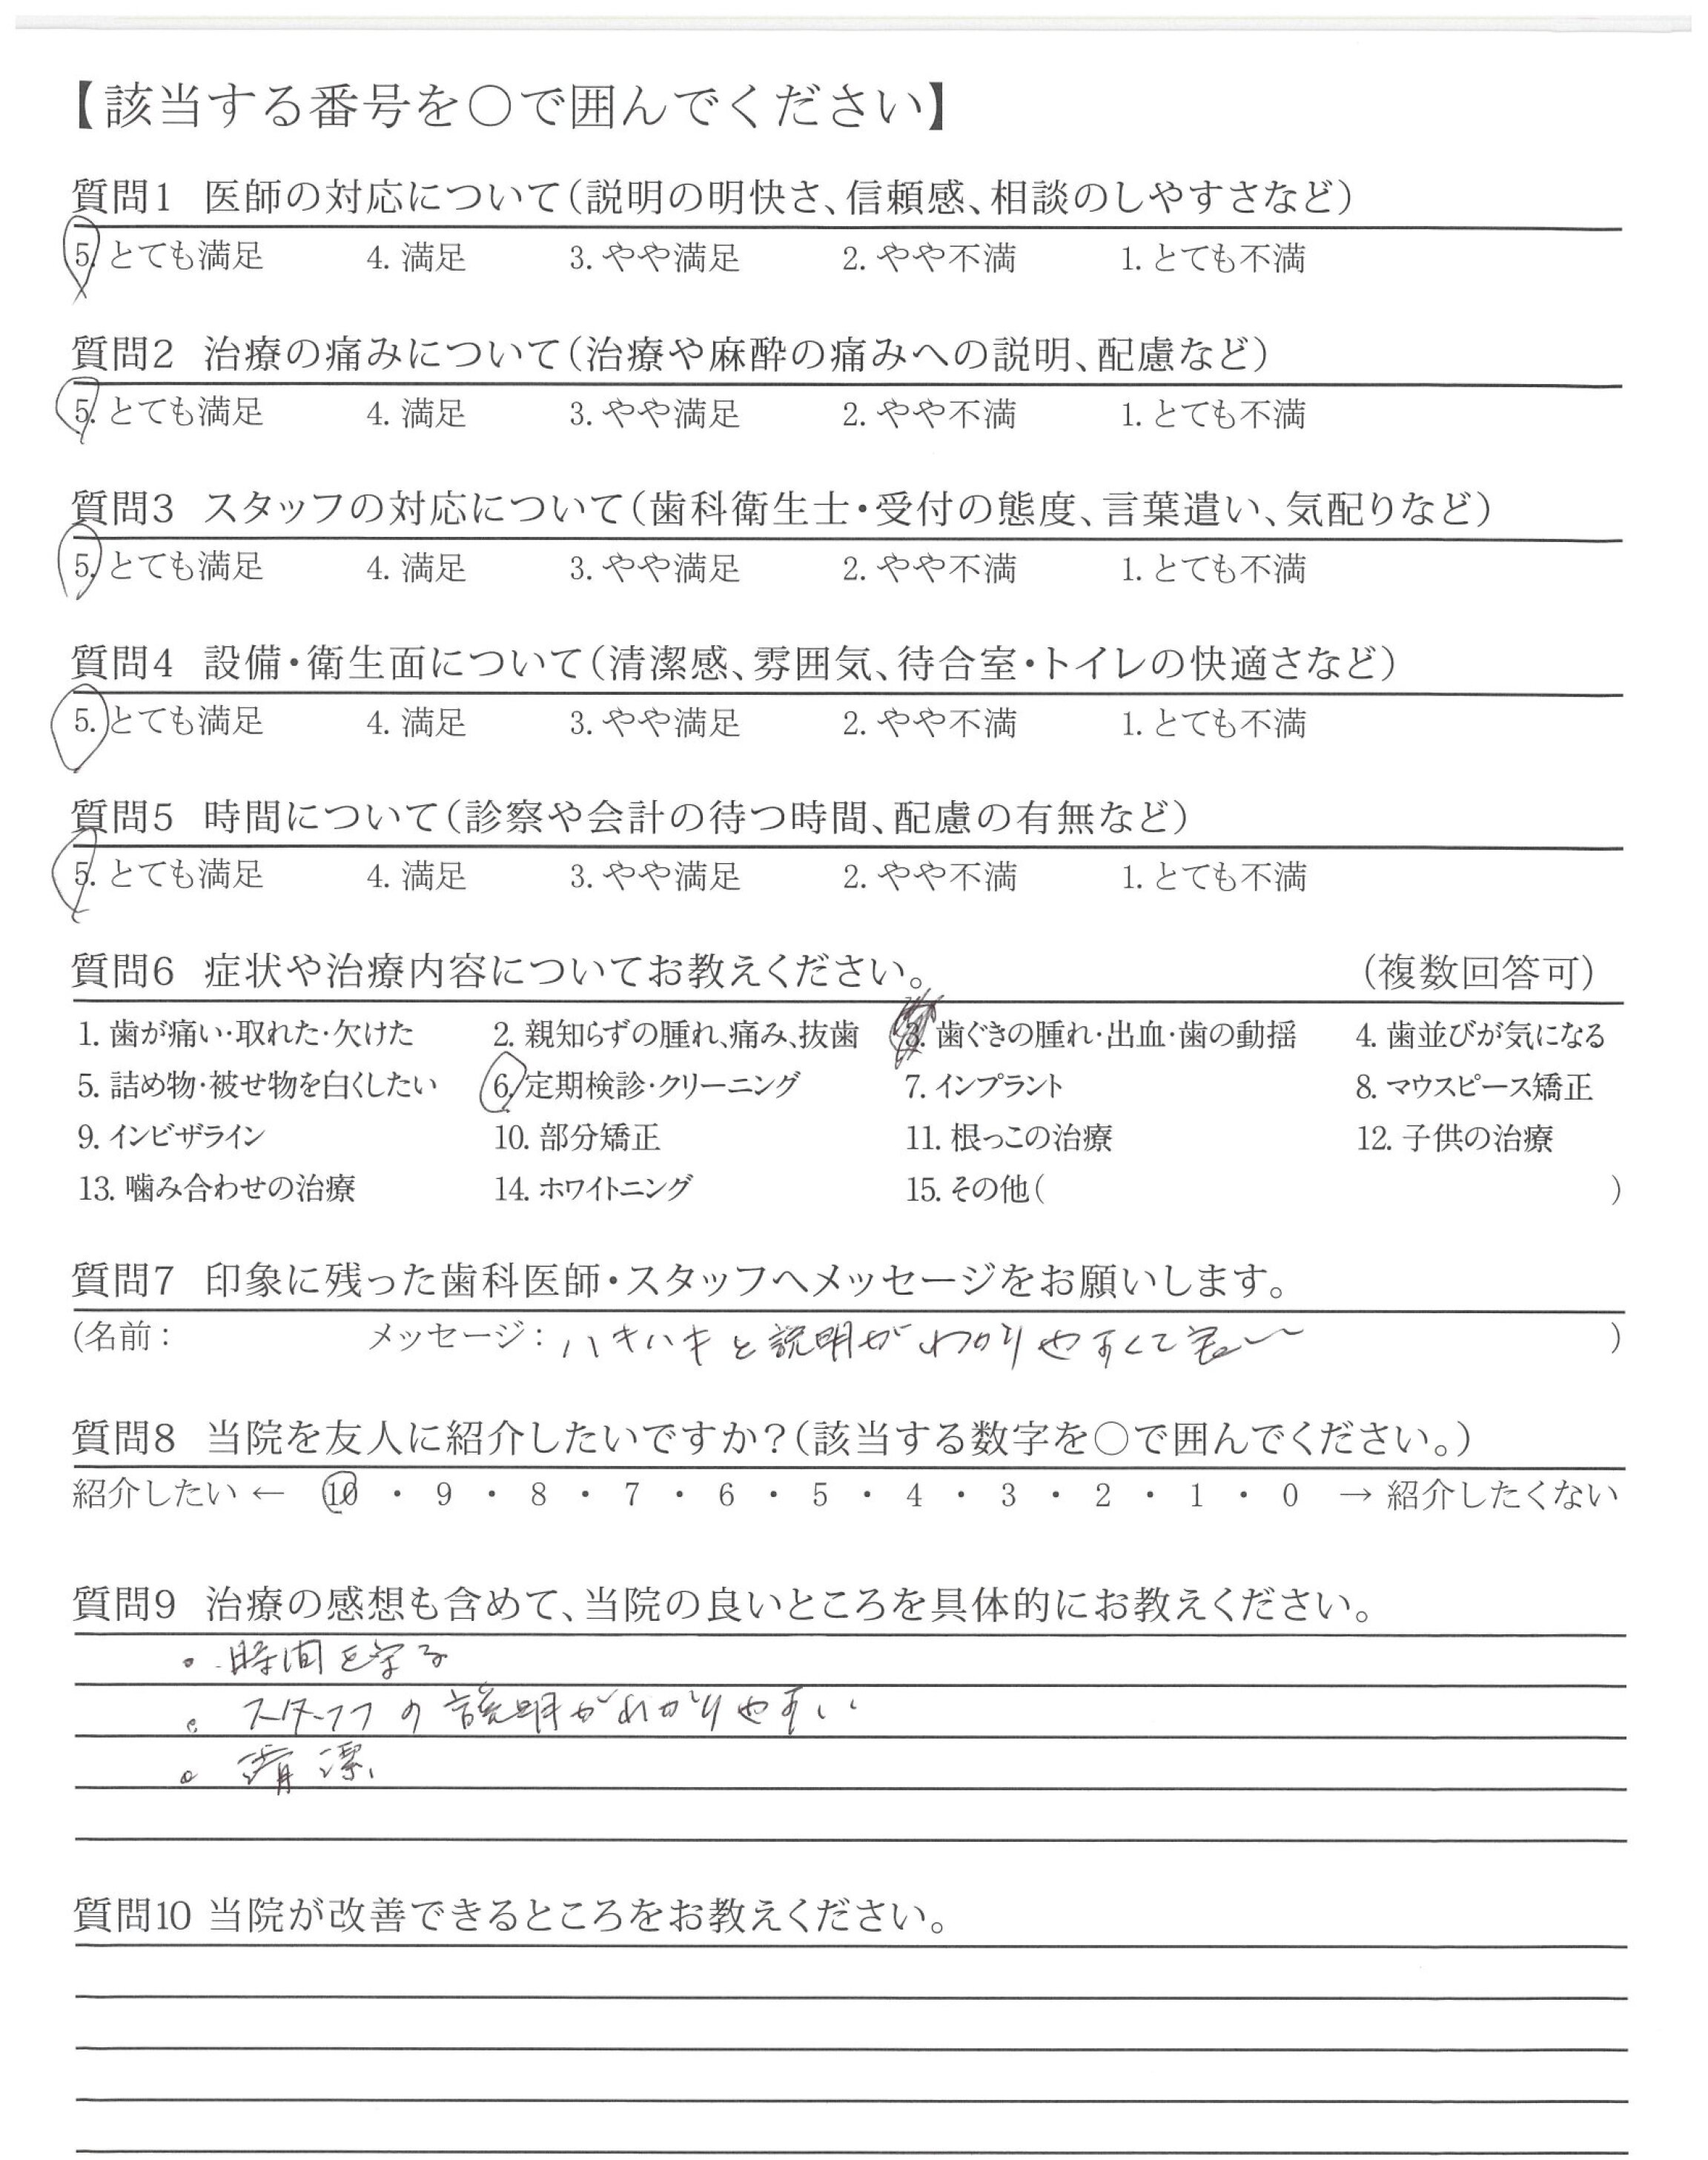 【該当する番号を○で囲んでください】
質問1 医師の対応について（説明の明快さ、信頼感、相談のしやすさなど）
5. とても満足 4. 満足 3. やや満足 2. やや不満 1. とても不満
質問2 治療の痛みについて（治療や麻酔の痛みへの説明、配慮など）
5. とても満足 4. 満足 3. やや満足 2. やや不満 1. とても不満
質問3 スタッフの対応について（歯科衛生士・受付の態度、言葉遣い、気配りなど）
5. とても満足 4. 満足 3. やや満足 2. やや不満 1. とても不満
質問4 設備・衛生面について（清潔感、雰囲気、待合室・トイレの快適さなど）
5. とても満足 4. 満足 3. やや満足 2. やや不満 1. とても不満
質問5 時間について（診察や会計の待つ時間、配慮の有無など）
5. とても満足 4. 満足 3. やや満足 2. やや不満 1. とても不満
質問6 症状や治療内容についてお教えください。 （複数回答可）
1. 歯が痛い・取れた・欠けた 2. 親知らずの腫れ、痛み、抜歯 3. 歯ぐきの腫れ・出血・歯の動揺 4. 歯並びが気になる
5. 詰め物・被せ物を白くしたい 6. 定期検診・クリーニング 7. インプラント 8. マウスピース矯正
9. インビザライン 10. 部分矯正 11. 根っこの治療 12. 子供の治療
13. 噛み合わせの治療 14. ホワイトニング 15. その他（ ）
質問7 印象に残った歯科医師・スタッフへメッセージをお願いします。
（名前： メッセージ：ハキハキと説明がわかりやすくて ）
質問8 当院を友人に紹介したいですか？（該当する数字を○で囲んでください。）
紹介したい ← 10 ・ 9 ・ 8 ・ 7 ・ 6 ・ 5 ・ 4 ・ 3 ・ 2 ・ 1 ・ 0 → 紹介したくない
質問9 治療の感想も含めて、当院の良いところを具体的にお教えください。
。時間を守る
。スタッフの説明がわかりやすい
。清潔
質問10 当院が改善できるところをお教えください。